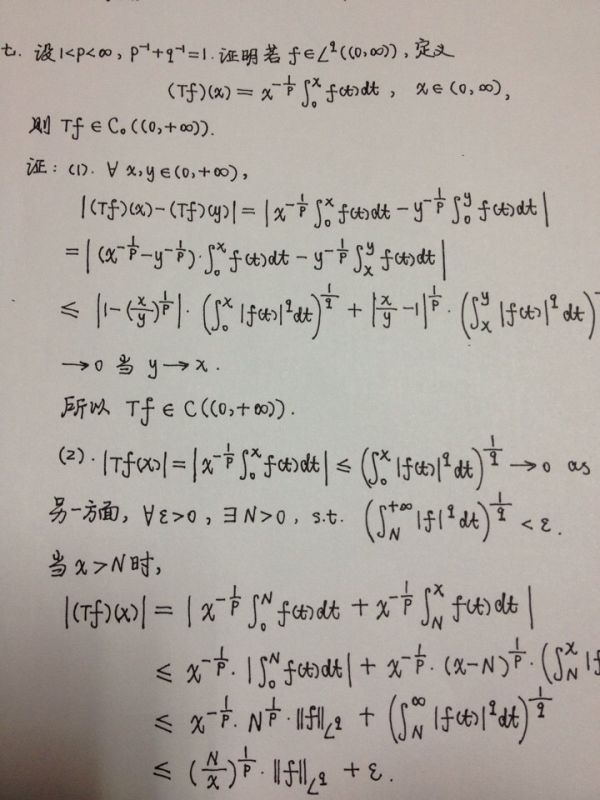 七. 设 1<p<∞, p⁻¹+q⁻¹=1. 证明若 f∈L^q((0,∞)), 定义
(Tf)(x) = x^{-1/p} ∫₀ˣ f(t)dt , x∈(0,∞),
则 Tf∈C₀((0,+∞)).
证: (1). ∀ x,y∈(0,+∞),
|(Tf)(x)-(Tf)(y)| = | x^{-1/p} ∫₀ˣ f(t)dt - y^{-1/p} ∫₀ʸ f(t)dt |
= | (x^{-1/p}-y^{-1/p})·∫₀ˣ f(t)dt - y^{-1/p} ∫ₓʸ f(t)dt |
≤ |1-(x/y)^{1/p}|·(∫₀ˣ |f(t)|^q dt)^{1/q} + |x/y -1|^{1/p}·(∫ₓʸ |f(t)|^q dt)
→0 当 y→x.
所以 Tf∈C((0,+∞)).
(2). |Tf(x)| = | x^{-1/p} ∫₀ˣ f(t)dt | ≤ (∫₀ˣ |f(t)|^q dt)^{1/q} →0 as
另一方面, ∀ε>0, ∃N>0, s.t. (∫_N^{+∞} |f|^q dt)^{1/q} < ε.
当 x>N 时,
|(Tf)(x)| = | x^{-1/p} ∫₀ᴺ f(t)dt + x^{-1/p} ∫_N^x f(t)dt |
≤ x^{-1/p}·|∫₀ᴺ f(t)dt| + x^{-1/p}·(x-N)^{1/p}·(∫_N^x |f
≤ x^{-1/p}·N^{1/p}·‖f‖_{L^q} + (∫_N^∞ |f(t)|^q dt)^{1/q}
≤ (N/x)^{1/p}·‖f‖_{L^q} + ε.